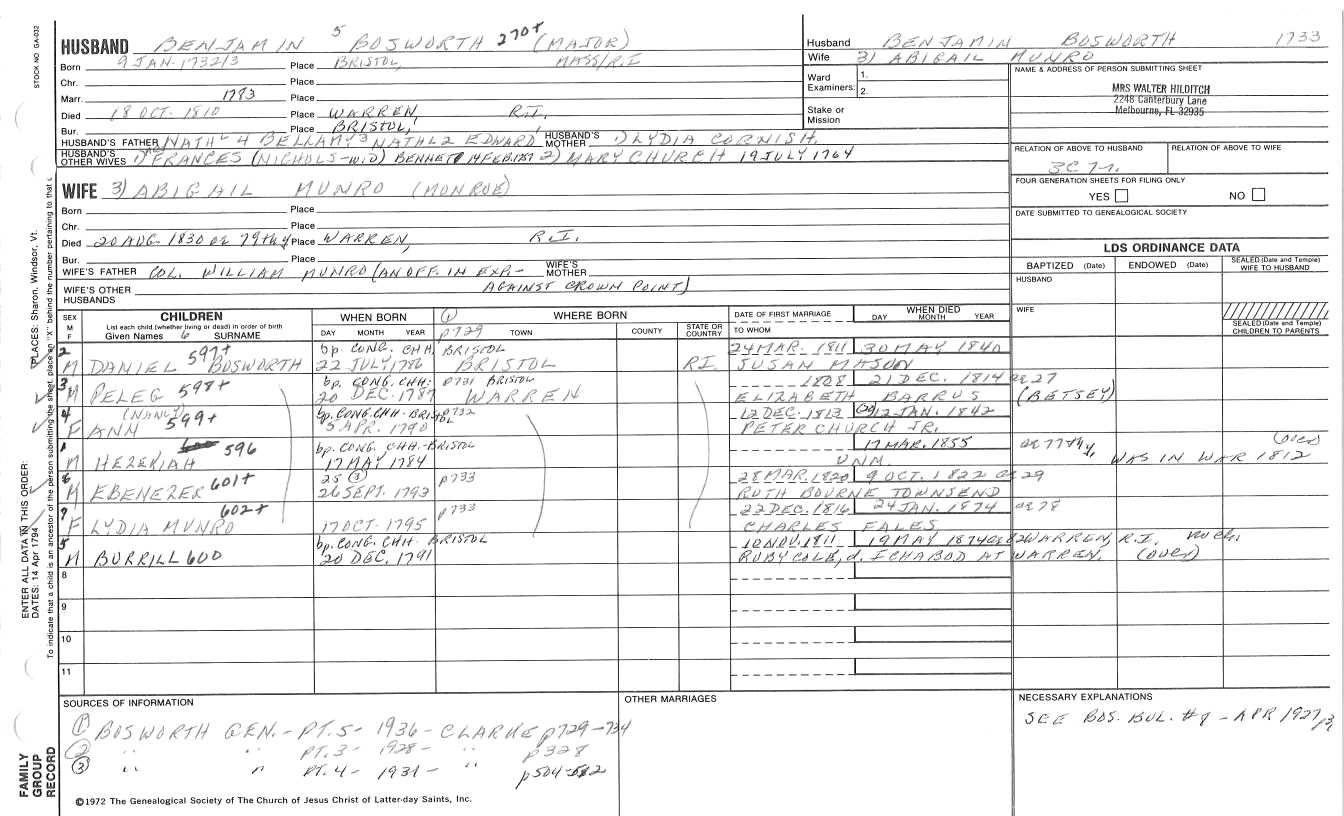 STOCK NO GA-032
HUSBAND BENJAMIN 5 BOSWORTH 270+ (MAJOR)
Born 9 JAN-1732/3 Place BRISTOL, MASS/R.I
Chr. Place
Marr. 1783 Place
Died 18 OCT. 1810 Place WARREN, R.I.
Bur. Place BRISTOL,
HUSBAND'S FATHER NATH'L 4 BELLAMY 3 NATHL2 EDWARD HUSBAND'S MOTHER 1) LYDIA CORNISH.
HUSBAND'S OTHER WIVES 1) FRANCES (NICHOLS-WID) BENNETT 14 FEB. 1757 2) MARY CHURCH 19 JULY 1764
Husband BENJAMIN BOSWORTH 1733
Wife 3) ABIGAIL MUNRO
Ward Examiners: 1.
2.
Stake or Mission
NAME & ADDRESS OF PERSON SUBMITTING SHEET
MRS WALTER HILDITCH
2248 Canterbury Lane
Melbourne, FL 32935
RELATION OF ABOVE TO HUSBAND RELATION OF ABOVE TO WIFE
3C 7r.
FOUR GENERATION SHEETS FOR FILING ONLY
YES NO
DATE SUBMITTED TO GENEALOGICAL SOCIETY
WIFE 3) ABIGAIL MUNRO (MONROE)
Born Place
Chr. Place
Died 20 AUG. 1830 or 79th y Place WARREN, R.I.
Bur. Place
WIFE'S FATHER COL. WILLIAM MUNRO (AN OFF. IN EXP.- WIFE'S MOTHER
AGAINST CROWN POINT)
WIFE'S OTHER HUSBANDS
LDS ORDINANCE DATA
BAPTIZED (Date) ENDOWED (Date) SEALED (Date and Temple) WIFE TO HUSBAND
HUSBAND
WIFE
SEALED (Date and Temple) CHILDREN TO PARENTS
SEX M F CHILDREN List each child (whether living or dead) in order of birth Given Names 6 SURNAME
WHEN BORN DAY MONTH YEAR
① WHERE BORN p729 TOWN COUNTY STATE OR COUNTRY
DATE OF FIRST MARRIAGE TO WHOM
WHEN DIED DAY MONTH YEAR
2 bp. CONG. CHH. BRISTOL 24 MAR. 1811 30 MAY 1840
M DANIEL 597+ BOSWORTH 22 JULY, 1786 BRISTOL RI. SUSAN MASON
3 bp. CONG. CHH: p731 BRISTOL 1808 21 DEC. 1814 ae 27
M PELEG 598+ 20 DEC. 1787 WARREN ELIZABETH BARRUS (BETSEY)
4 (NANCY) bp. CONG. CHH-BRISTOL p732 12 DEC. 1813 12 JAN. 1842
F ANN 599+ 5 APR. 1790 PETER CHURCH JR.
1 596 bp. CONG. CHH.-BRISTOL 17 MAR. 1855 ae 77th y, (over)
M HEZEKIAH 17 MAY 1784 UNM. WAS IN WAR 1812
6 25 ③ p733 28 MAR. 1820 9 OCT. 1822 ae 29
M EBENEZER 601+ 26 SEPT. 1793 RUTH BOURNE TOWNSEND
7 602+ p733 22 DEC. 1816 24 JAN. 1874 ae 78
F LYDIA MUNRO 17 OCT. 1795 CHARLES FALES
5 bp. CONG. CHH BRISTOL 10 NOV. 1811 19 MAY 1874 ae 82 WARREN, R.I.
M BURRILL 600 20 DEC. 1791 RUBY COLE, d. ICHABOD AT WARREN. (over)
8
9
10
11
SOURCES OF INFORMATION
① BOSWORTH GEN.-PT.5-1936-CLARKE p729-734
② " " PT.3-1928- " p328
③ " " PT.4-1931- " p504-
OTHER MARRIAGES
NECESSARY EXPLANATIONS
SEE BOS. BUL. #8-APR 1927,
©1972 The Genealogical Society of The Church of Jesus Christ of Latter-day Saints, Inc.
FAMILY GROUP RECORD
ENTER ALL DATA IN THIS ORDER:
DATES: 14 Apr 1794
PLACES: Sharon, Windsor, Vt.
To indicate that a child is an ancestor of the person submitting the sheet, place an "X" behind the number pertaining to that